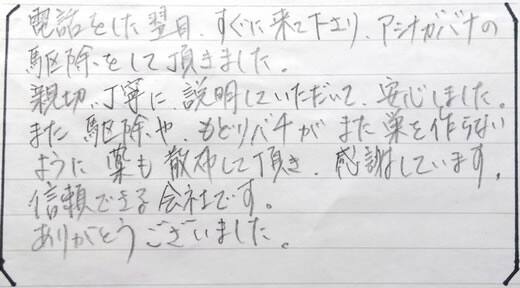 電話をした翌日、すぐに来て下さり、アシナガバチの
駆除をして頂きました。
親切、丁寧に、説明していただいて、安心しました。
また 駆除や、もどりバチが また巣を作らない
ように 薬も 散布して頂き、感謝しています。
信頼できる 会社です。
ありがとうございました。